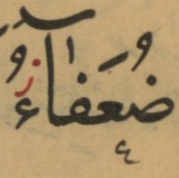 ضُعَفَآءُ ز